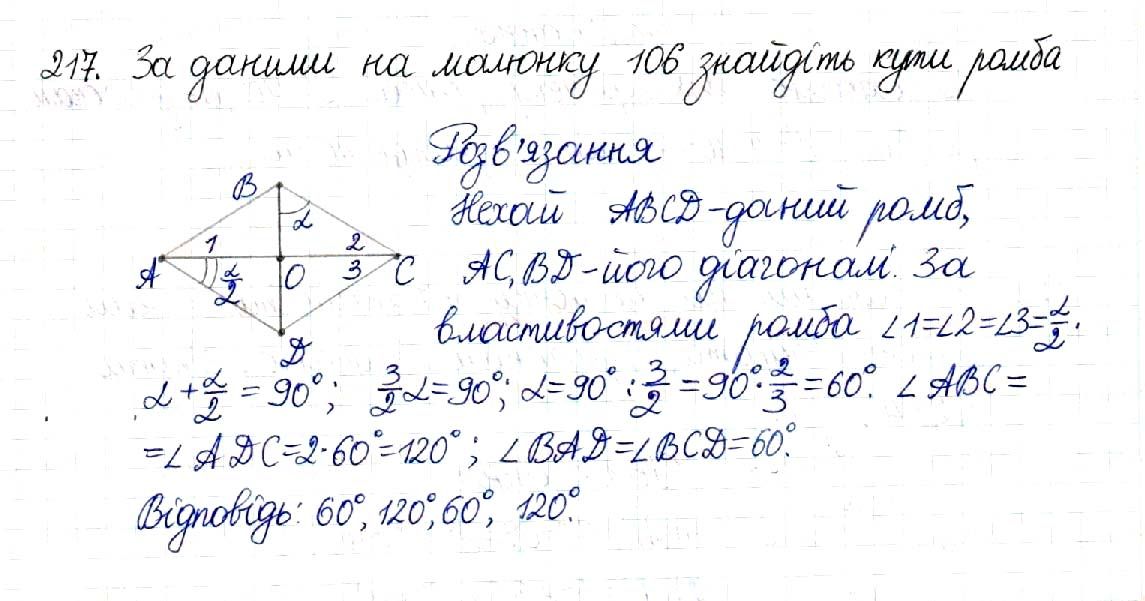 217. За даними на малюнку 106 знайдіть кути ромба
Розв'язання
B
α
1
2
A
α/2
O
3
C
D
Нехай ABCD-даний ромб,
AC, BD-його діагоналі. За
властивостями ромба ∠1=∠2=∠3=α/2.
α+α/2=90°; 3/2α=90°; α=90°:3/2=90°·2/3=60°. ∠ABC=
=∠ADC=2·60°=120°; ∠BAD=∠BCD=60°.
Відповідь: 60°, 120°, 60°, 120°.